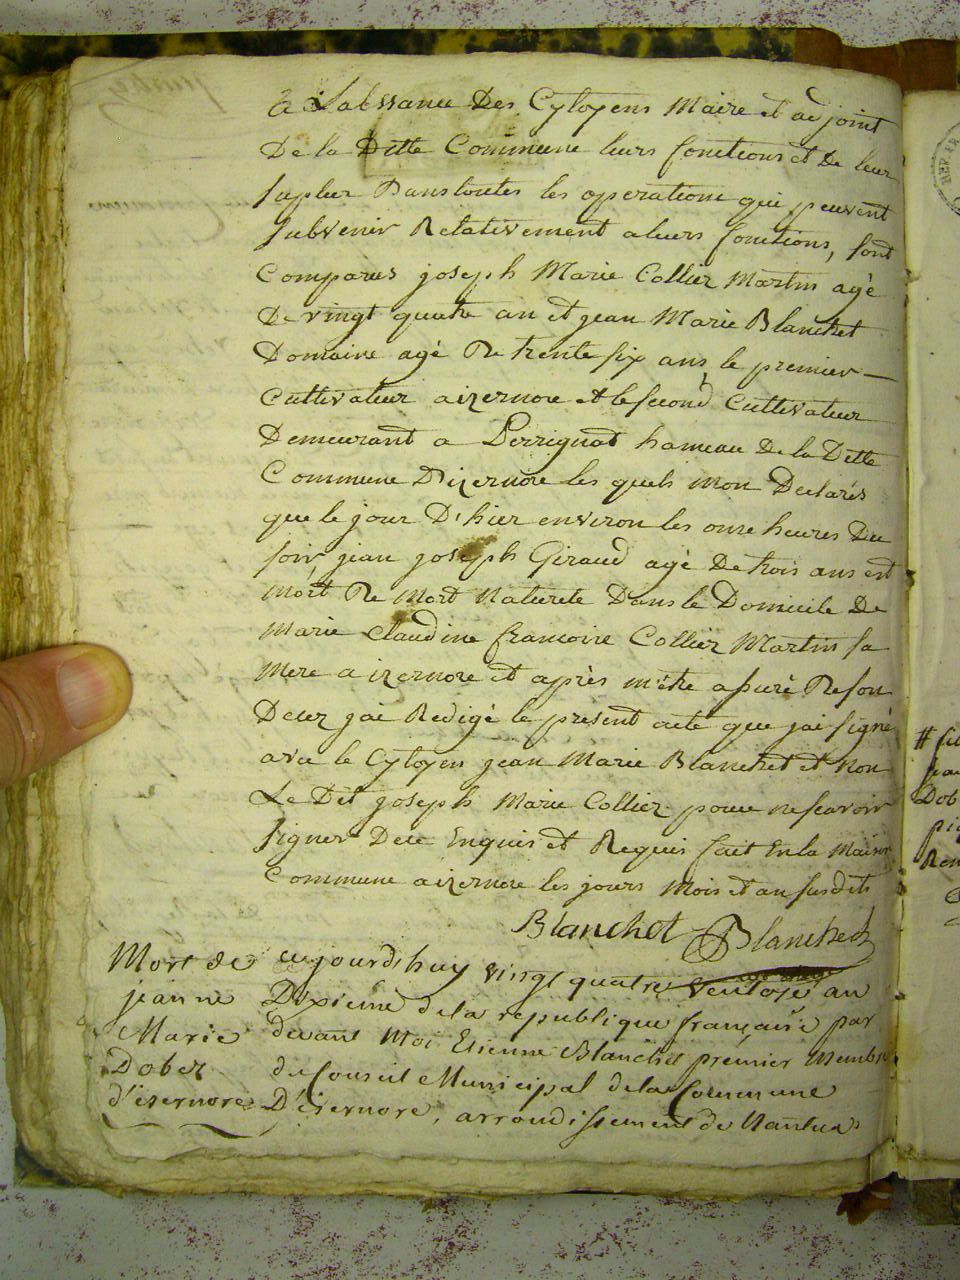 à Labssance Des Cytoyens Maire et adjoint
De la Ditte Commune leurs fonctions et De leur
supleer Dans toutes les operations qui peuvent
subvenir Relativement a leurs fonctions, sont
Comparus joseph Marie Collier Martin agé
De vingt quatre an et jean Marie Blanchet
Domaine agé De trente six ans, le premier
Cultivateur a izernore et le second Cultivateur
Demeurant a Perrignat hameau De la Ditte
Commune D'izernore les quels mon Declarés
que le jour D'hier environ les onse heures Du
soir, jean joseph Giraud agé De trois ans est
mort De Mort Naturele Dans le Domicile De
Marie Claudine francoise Collier Martin sa
Mere a izernore et après metre assuré De son
Decez jai Redigé le present acte que jai signé
avec le Cytoyen jean Marie Blanchet et Non
Le Dit joseph Marie Collier pour ne scavoir
signer Dece Enquis et Requis fait En la Maison
Commune a izernore les jours Mois et an susdits
Blanchet Blanchet
Mort de
jeanne
Marie
Dober
d'isernore
aujourdhuy vingt quatre ventose an
Dixième de la republique française par
devant Moi Etienne Blanchet premier Membre
du Conseil Municipal de la Commune
D'isernore, arrondissement de Nantua